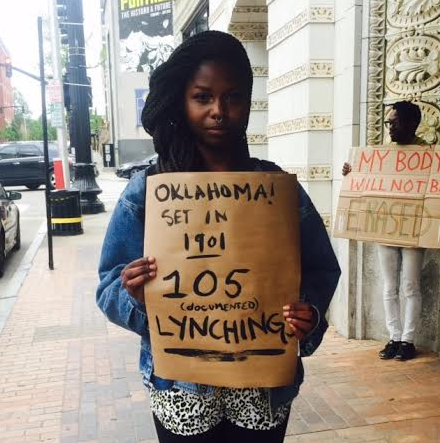 THE HISTORY & FUTURE
OKLAHOMA!
SET IN
1901
105
(DOCUMENTED)
LYNCHINGS
MY BODY
WILL NOT B
ERASED